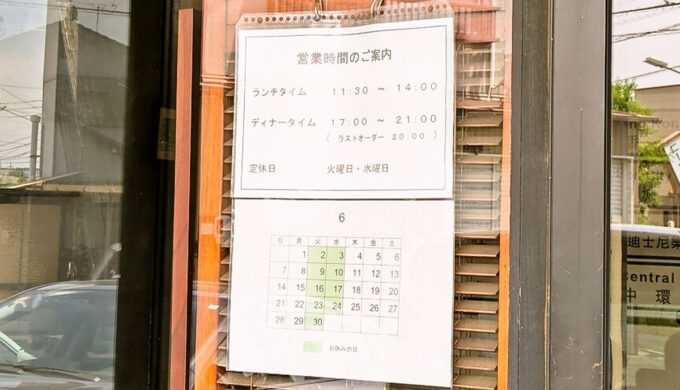 営業時間のご案内
ランチタイム 11:30 ～ 14:00
ディナータイム 17:00 ～ 21:00
( ラストオーダー 20:00 )
定休日 火曜日・水曜日
6
日 月 火 水 木 金 土
1 2 3 4 5 6
7 8 9 10 11 12 13
14 15 16 17 18 19 20
21 22 23 24 25 26 27
28 29 30
お休みの日
迪士尼樂
Central
中環